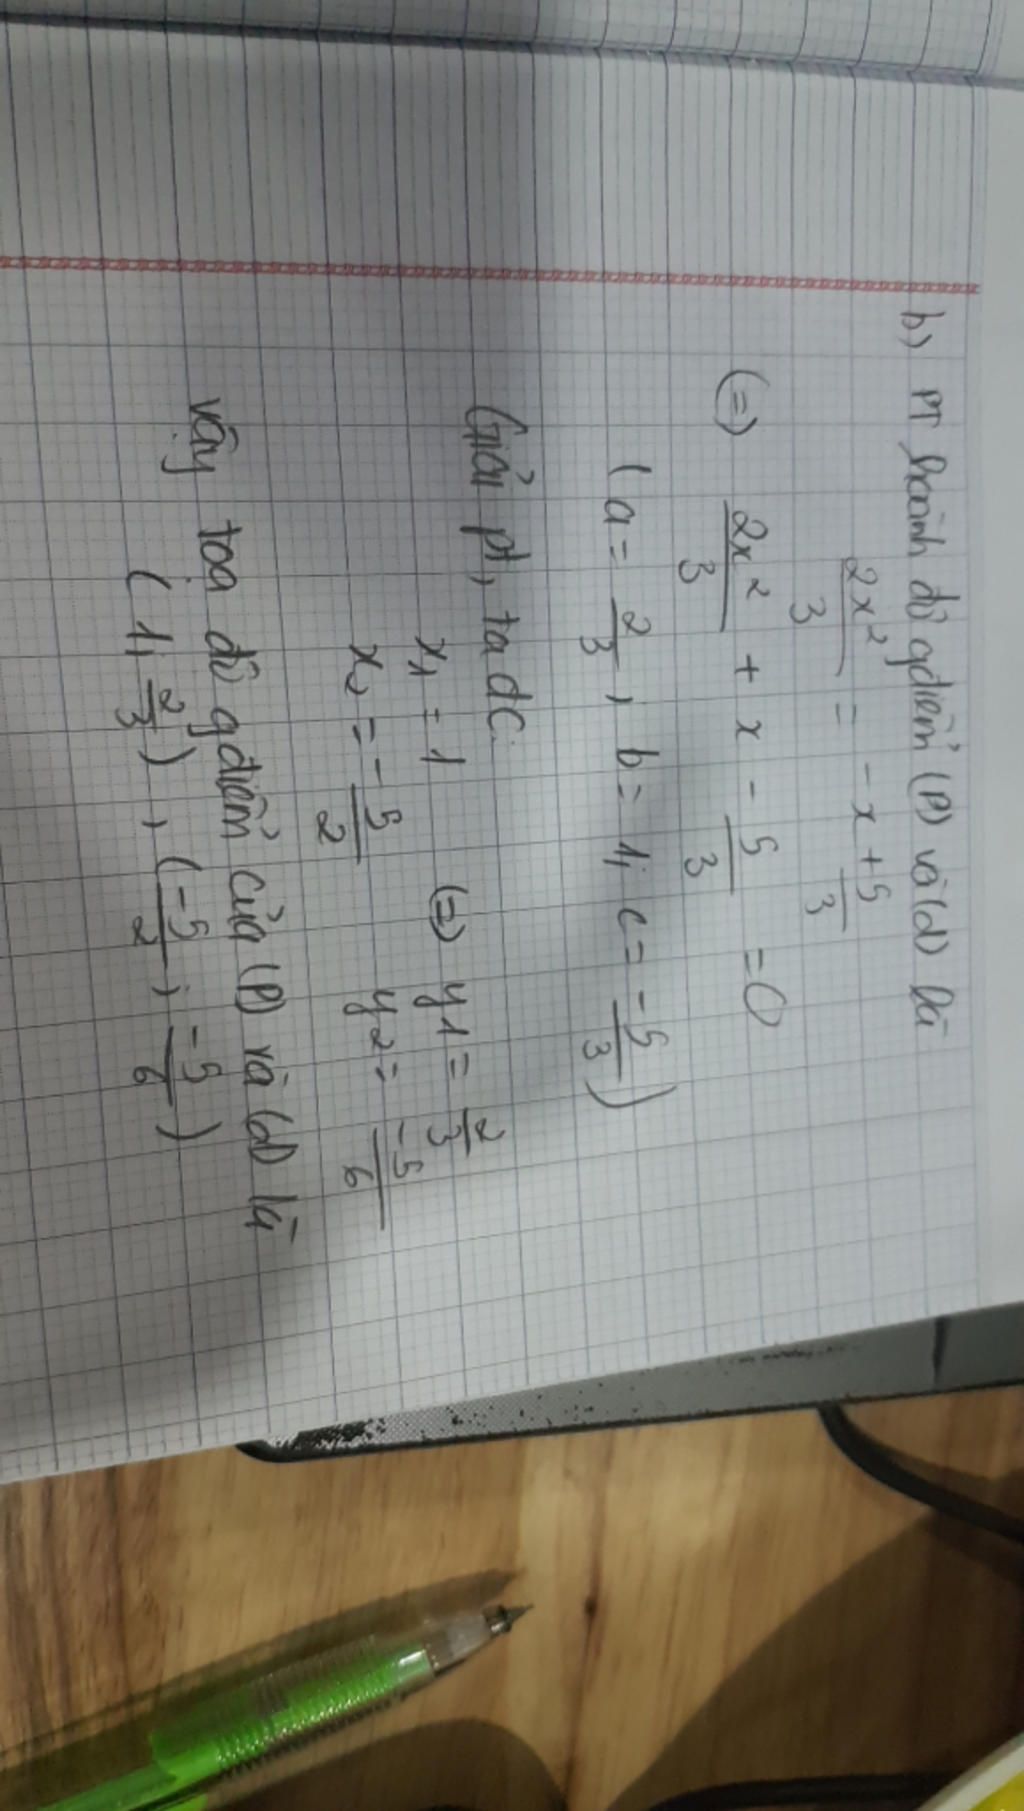 b) PT hoành độ gđiểm (P) và (d) là
2x²/3 = -x + 5/3
(=) 2x²/3 + x - 5/3 = 0
(a = 2/3, b = 1, c = -5/3)
Giải pt, ta dc:
x1 = 1 (=) y1 = 2/3
x2 = -5/2 y2 = -5/6
vậy toạ độ gđiểm của (P) và (d) là
(1; 2/3), (-5/2; -5/6)